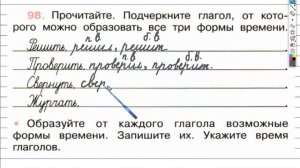 98. Прочитайте. Подчеркните глагол, от кото-
рого можно образовать все три формы времени.
п.в. б.в.
Решить, решил, решит.
п.в. б.в.
Проверить, проверил, проверит.
Свернуть, свер
Журчать.
• Образуйте от каждого глагола возможные
формы времени. Запишите их. Укажите время
глаголов.